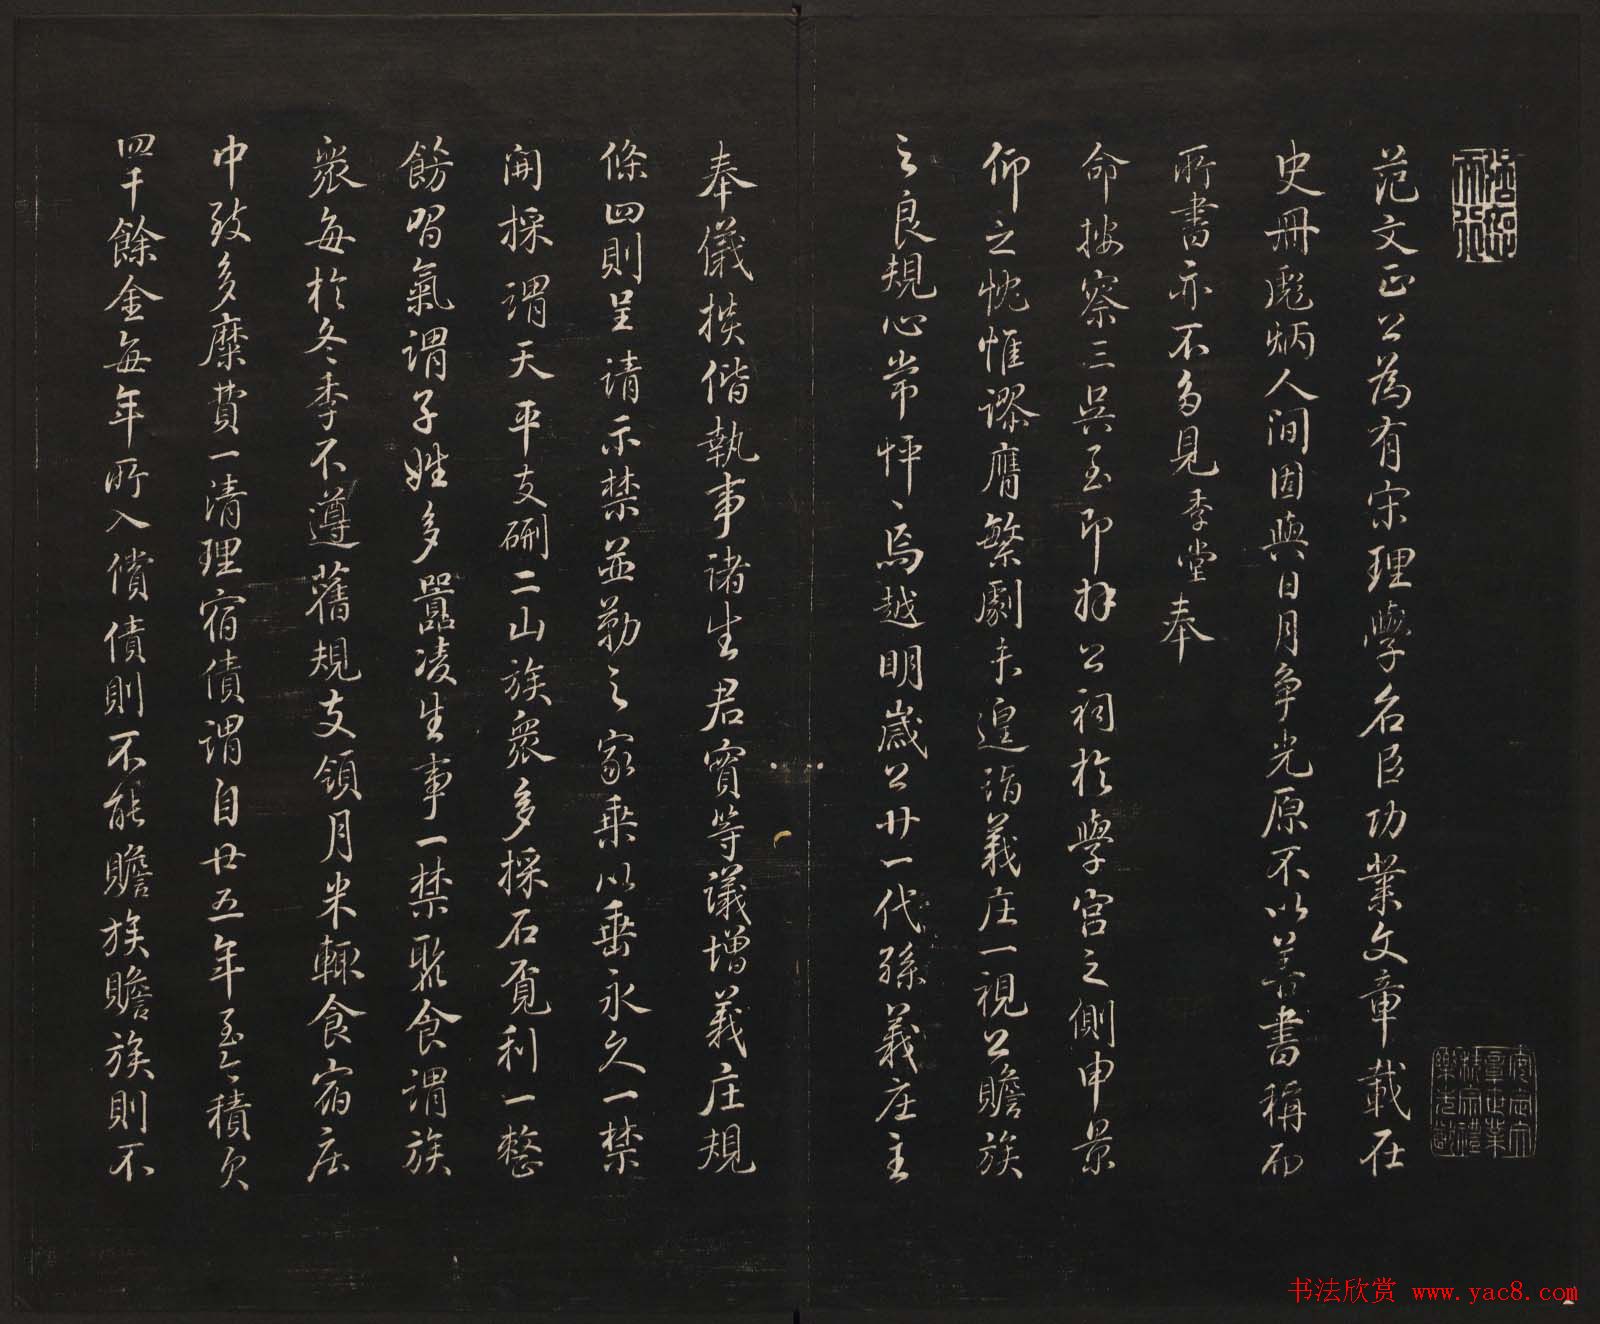 范文正公為有宋理學名臣功業文章載在
史冊彪炳人间固與日月争光原不以善書稱而
所書亦不多見季堂奉
命按察三吴至即拜公祠於學宫之側申景
仰之忱惟謬膺繁劇未遑詣義庄一視公贍族
之良規心常怦怦焉越明歲公廿一代孫義庄主
奉儀揆偕執事諸生君實等議增義庄規
條四則呈請示禁並勒之家乘以垂永久一禁
開採謂天平支硎二山族衆多採石覓利一整
飭習氣謂子姓多嚣凌生事一禁聚食謂族
衆每於冬季不遵舊規支領月米輙食宿庄
中致多糜費一清理宿債謂自廿五年至今積欠
四千餘金每年所入償債則不能贍族贍族則不
书法欣赏 www.yac8.com